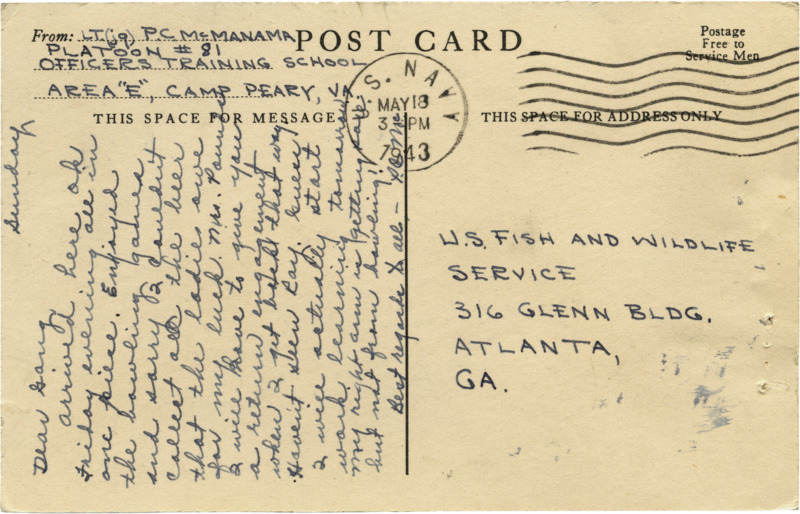 From: LT(jg) P.C. McMANAMA
PLATOON # 81
OFFICERS TRAINING SCHOOL
AREA "E", CAMP PEARY, VA.
POST CARD
Postage
Free to
Service Men
U.S. NAVY
MAY 18
3 PM
1943
THIS SPACE FOR MESSAGE
THIS SPACE FOR ADDRESS ONLY
Sunday
Dear Gang
arrived here ok
Friday evening all in
one piece. Enjoyed
the bowling games
and sorry I couldn't
collect all the beer
that the ladies owe
for my luck. Mrs.
I will have to give you
a return engagement
when I get back that way
Haven't seen Ray. Guess
I will actually start
work, learning tomorrow
My right arm is getting sore
but not from bowling!
Best regards to all –
U.S. FISH AND WILDLIFE
SERVICE
316 GLENN BLDG.
ATLANTA,
GA.